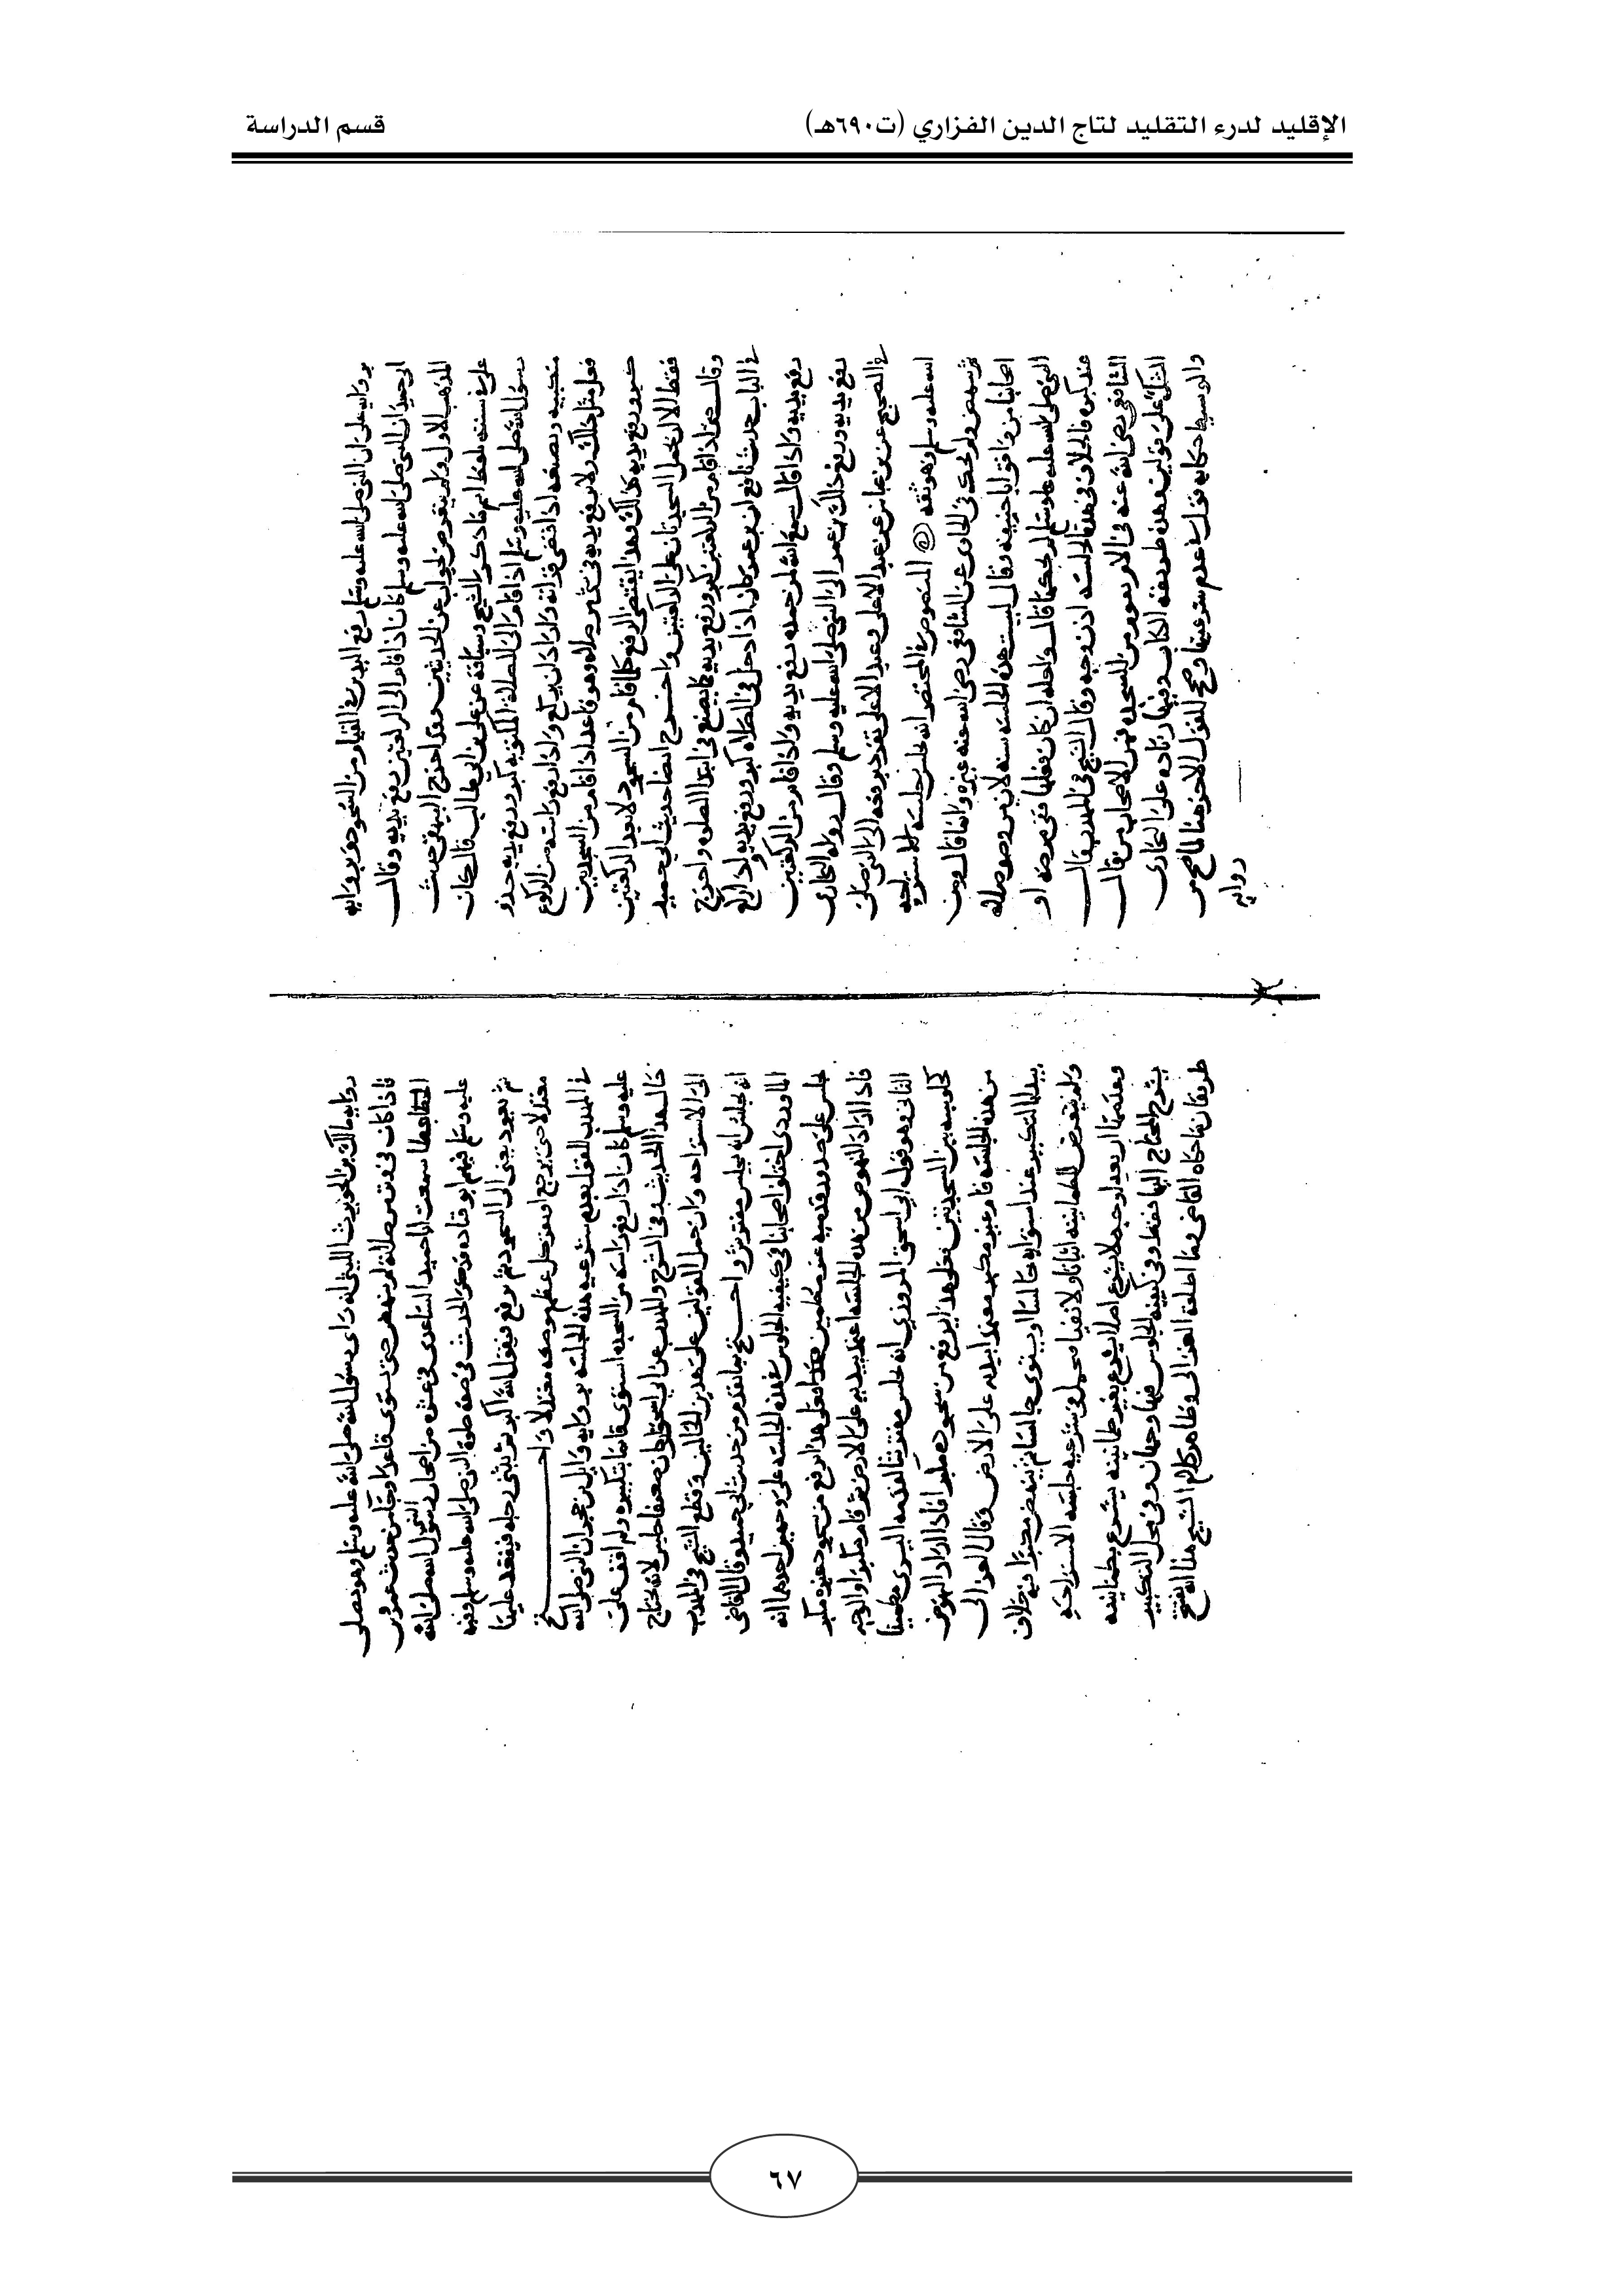 الإقليد لدرء التقليد لتاج الدين الفزاري (ت٦٩٠هـ)
قسم الدراسة
ان النبي صلى الله عليه وسلم رفع اليدين في القيام من السجود
ابي حميد ان النبي صلى الله عليه وسلم كان اذا قام الى الركعتين رفع يديه وقال
المذهب الاول ولم يتعرض لجواب عن الحديثين وقد اخرج البيهقي حديث
علي في سننه بلفظ اتم مما ذكر الشيخ وساقه عن علي بن ابي طالب قال كان
رسول الله صلى الله عليه وسلم اذا قام الى الصلاة المكتوبه كبر ورفع يديه حذو
منكبيه ويصنعه اذا قضى قراته واراد ان يركع واذا رفع راسه من الركوع
فعل مثل ذلك ولا يرفع يديه في شي من صلاته وهو قاعد اذا قام من السجدتين
كبر ورفع يديه كذلك وهذا يقتضي الرفع كلما قام من السجود لا بعد الركعتين
فقط الا ان تحمل السجدتان على الركعتين واخرج ايضا حديث ابي حميد
وقال حتى اذا قام من الركعتين كبر ورفع يديه كما يصنع في ابتدا الصلوه واخرج
في الباب حديث نافع ان ابن عمر كان اذا دخل في الصلاه كبر ورفع يديه واذا ركع
رفع يديه واذا قال سمع الله لمن حمده رفع يديه واذا قام من الركعتين
رفع يديه ورفع ذلك بن عمر الى النبي صلى الله عليه وسلم وقال رواه البخاري
في الصحيح عن عن عبد الاعلى وعبد الاعلى تفرد برفعه الى النبي صلى
الله عليه وسلم وهو ثقه المنصوص في المختصر انه جلس جلسه الاستراحه
ثم ينهض ولم يحك في الحاوي عن الشافعي رضي الله عنه غيره وانما قال ومن
اصحابنا من وافق ابا حنيفه وقال ليست هذه الجلسه سنه لان من وصف صلاه
النبي صلى الله عليه وسلم لم يحكها قال ان كان فعلها ففي مرضه او
عند كبره فالخلاف في هذه الجلسه اذن وجه وقال الشيخ في المهذب قال
الشافعي رضي الله عنه في الام يقوم من السجده فمن الاصحاب من قال
على قولين وهذه طريقه الكتاب وفيها زياده على الحاوي
والوسيط حكايه قول في عدم شرعيتها وصحح القول الاخر هنا لما صح من
روايه
روايه مالك بن الحويرث الليثي انه راى رسول الله صلى الله عليه وسلم وهو يصلي
فاذا كان في وتر من صلاته لم ينهض حتى يستوي قاعدا وحكى من حديث محمد بن عمرو بن
عطا سمعت ابا حميد الساعدي في عشره من اصحاب رسول الله صلى الله
عليه وسلم فيهم ابو قتاده وذكر الحديث في صفه صلوه النبي صلى الله عليه وسلم وفيه
ثم يعود يعني الى السجود ثم يرفع فيقول الله اكبر ثم يثني رجله فيقعد عليها
معتدلا حتى يرجع او يقر كل عظم موضعه معتدلا واحتج
في المهذب للقول بعدم شرعيه هذه الجلسه بروايه وايل بن حجر ان النبي صلى الله
عليه وسلم كان اذا رفع راسه من السجده استوى قائما بتكبيره ولم اقف على
حال هذا الحديث وفي الشرح والمهذب عن ابي اسحق ان كان ضعيفا جلس لانه يحتاج
الى الاستراحه وان حمل القولين على هذين الحالين وقطع الشيخ في المهذب
انه يجلس مفترشا واحتج بما تقدم من حديث ابي حميد وقال القاضي
الماوردي اختلف اصحابنا في كيفيه الجلوس في هذه الجلسه على وجهين احدهما انه
جلس على صدور قدميه غير مطمئن فعلى هذا يرفع من سجوده غير مكبر
فاذا اراد النهوض من هذه الجلسه اعتمد بيديه على الارض ثم قام مكبرا والوجه
الثاني وهو قول ابي اسحق المروزي انه جلس مفترشا لقدمه اليسرى مطمئنا
كجلوسه بين السجدتين فعلى هذا يرفع من سجوده مكبرا فاذا اراد النهوض
من هذه الجلسه قام غير مكبر معتمدا بيديه على الارض وقال الغزالي
يبتدئ التكبير عند استوائه جالسا او يستوي جالسا ثم ينهض مكبرا فيه خلاف
ولم يتعرض للطمانينه اثباتا ولا نفيا في شرعيه جلسه الاستراحه
وصفتها اربعه اوجه لا يشرع اصلا يشرع بغير طمانينه يشرع بطمانينه
يشرع للمحتاج اليها فقط وفي كيفيه الجلوس فيها وجهان وفي محل التكبير
طريقان ما حكاه القاضي وما اطلقه الغزالي وظاهر كلام الشيخ هنا انه يفتتح
٦٧